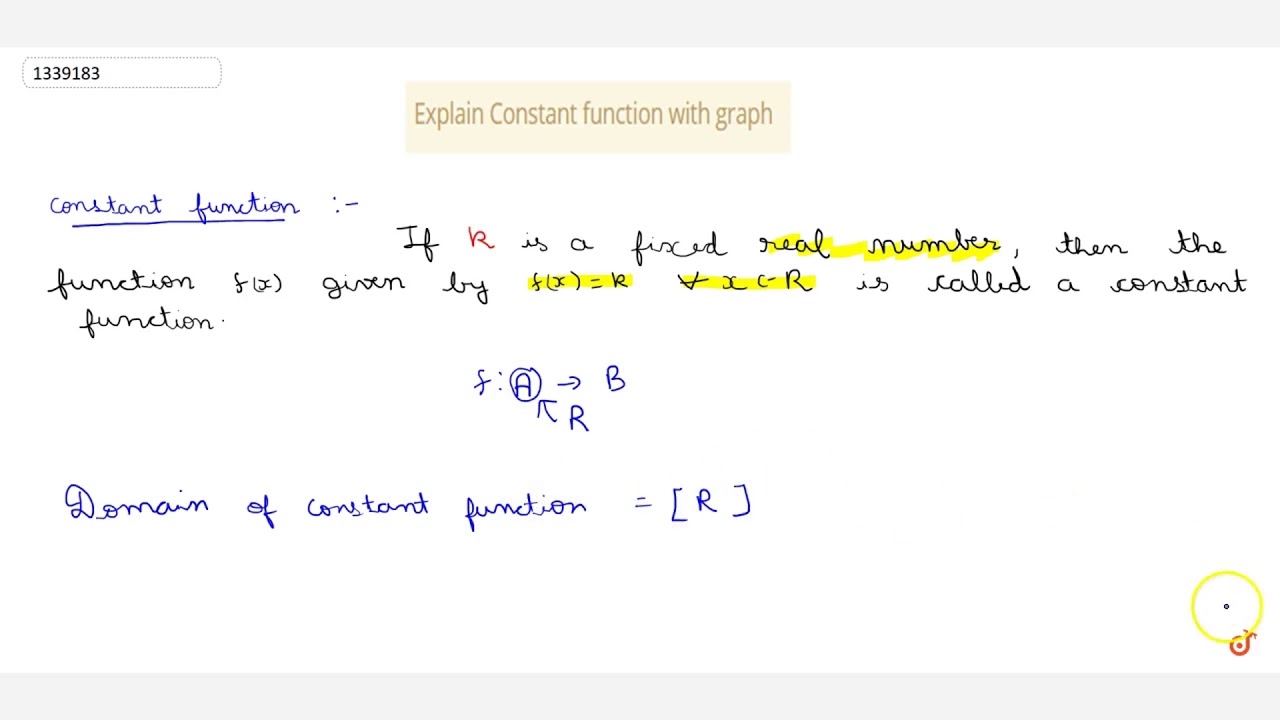 1339183
Explain Constant function with graph
constant function :-
If k is a fixed real number, then the
function f(x) given by f(x) = k ∀ x ∈ R is called a constant
function.
f: A → B
R
Domain of constant function = [ R ]